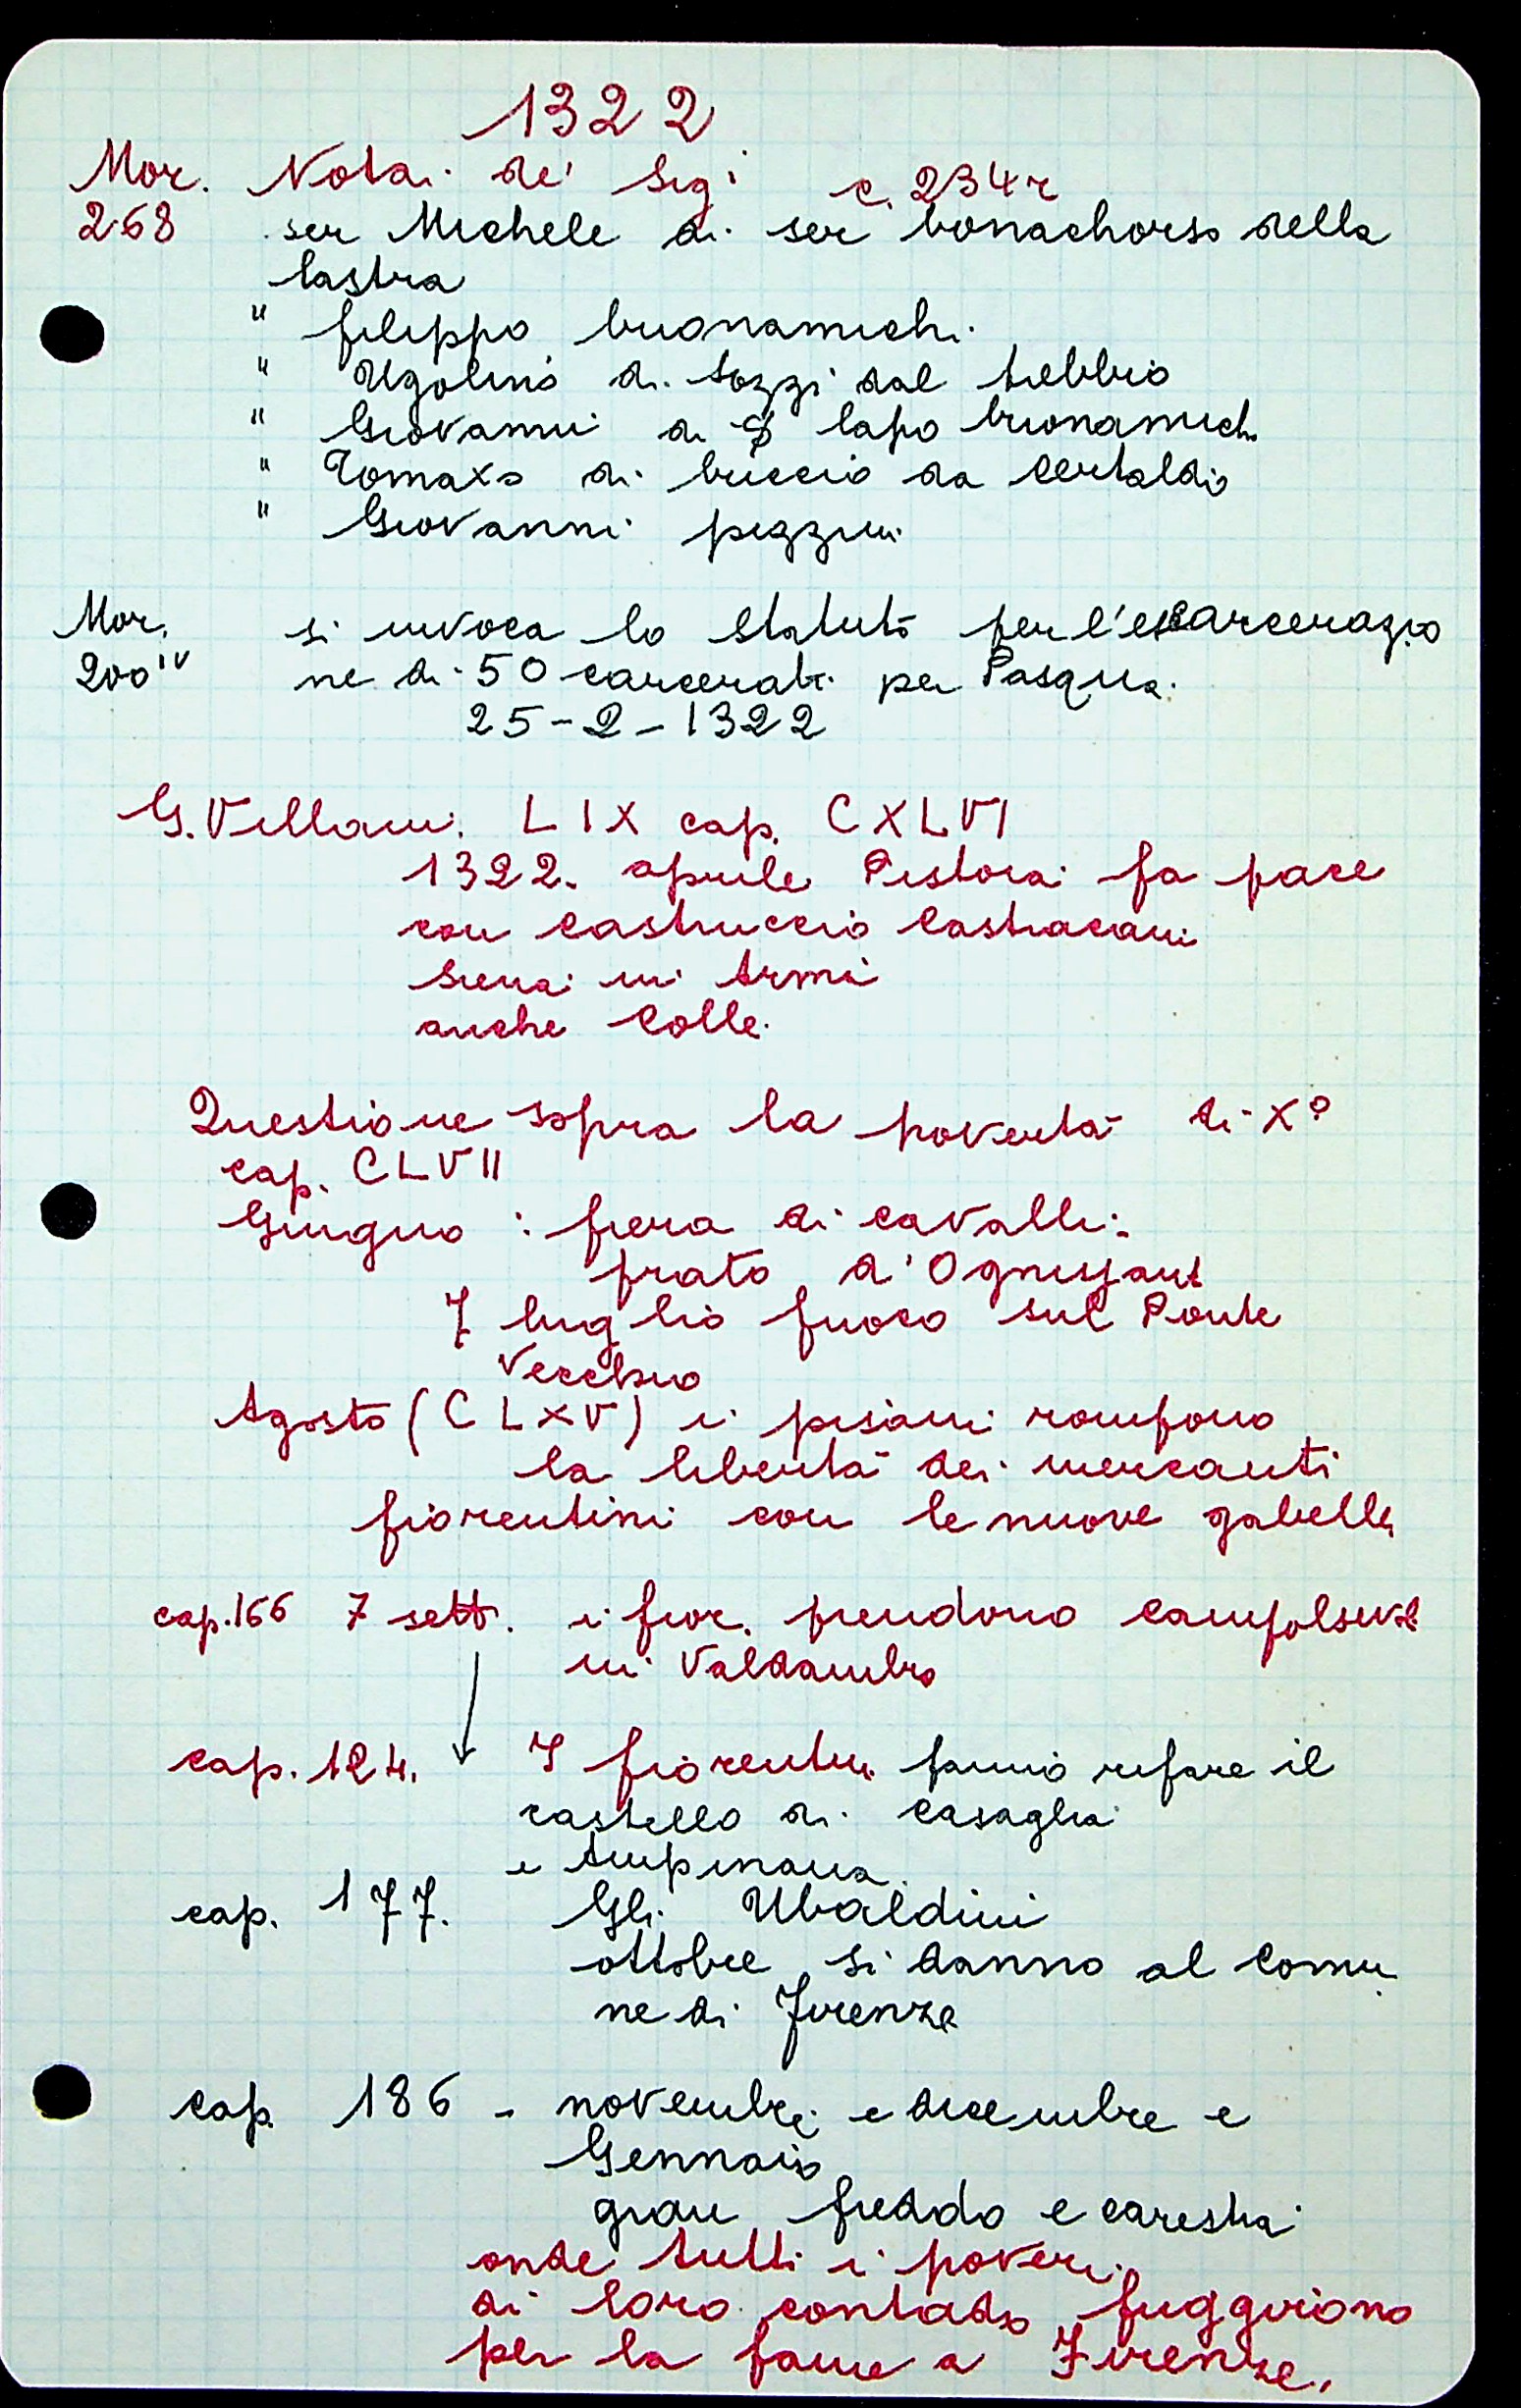 1322
Mor. Notai de' Sigi c. 234r
268 ser Michele di ser bonachorso della
lastra
" filippo buonamichi
" Ugolino di tozzi dal trebbio
" Giovanni di S lapo buonamichi
" Tomaxo di buccio da Certaldo
" Giovanni pezzini
Mor. si invoca lo statuto per l'escarcerazio
200 IV ne di 50 carcerati per Pasqua.
25-2-1322
G. Villani. L IX cap. CXLVI
1322. aprile Pistoia fa pace
con Castruccio Castracani
Siena in Armi
anche Colle.
Questione sopra la povertà di Xº
cap. CLVII
Giugno : fiera di cavalli:
prato d'Ognissanti
7 luglio fuoco sul Ponte
Vecchio
Agosto (CLXV) i pisani rompono
la libertà dei mercanti
fiorentini con le nuove gabelle
cap. 166 7 sett. i fior. prendono
in Valdambra
cap. 124. I fiorentini fanno rifare il
castello di Casaglia
e
cap. 177. Gli Ubaldini
ottobre si danno al Comu
ne di Firenze
cap. 186 - novembre e dicembre e
Gennaio
gran freddo e carestia
onde tutti i poveri
di loro contado fuggirono
per la fame a Firenze.